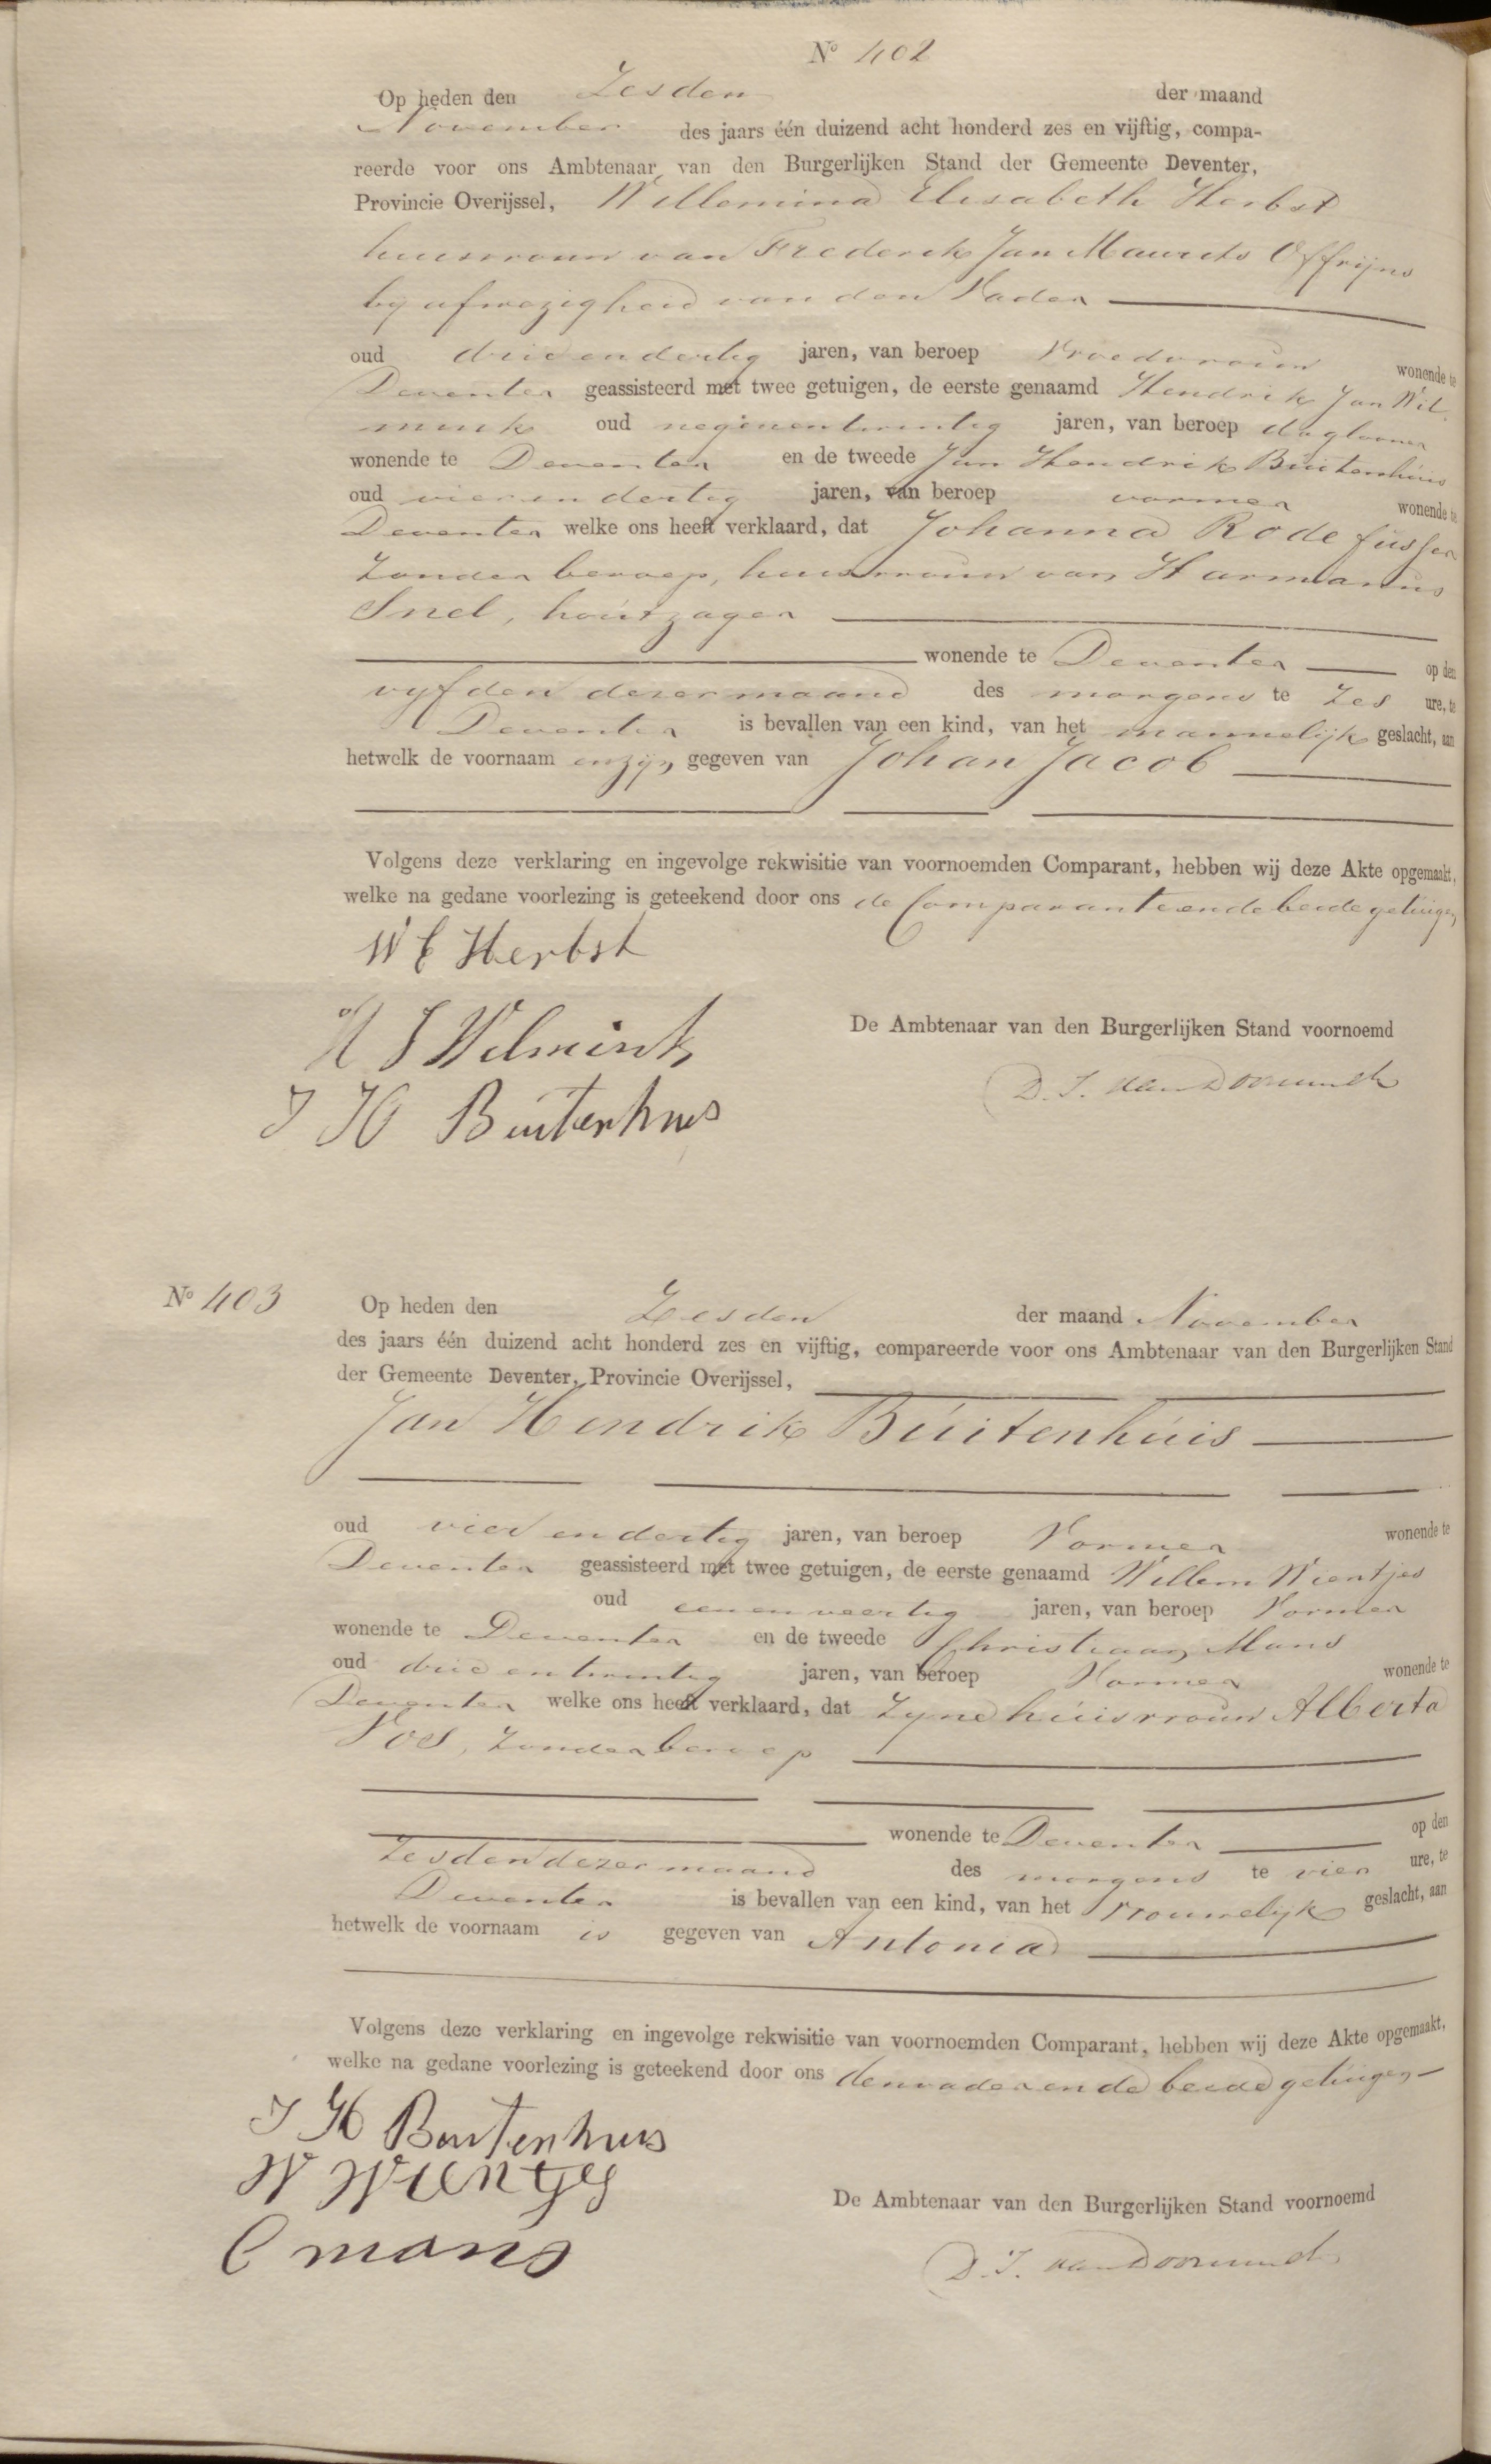 No 402
Op heden den Zesden der maand
November des jaars één duizend acht honderd zes en vijftig, compa-
reerde voor ons Ambtenaar van den Burgerlijken Stand der Gemeente Deventer,
Provincie Overijssel, Willemina Elisabeth Herbst
huisvrouw van Frederik Jan Maurits Offrijns
by afwezigheid van den Vader
oud drie en dertig jaren, van beroep Vroedvrouw wonende te
Deventer geassisteerd met twee getuigen, de eerste genaamd Hendrik Jan Wil
mink oud negenentwintig jaren, van beroep daglooner
wonende te Deventer en de tweede Jan Hendrik Buitenhuis
oud vier en dertig jaren, van beroep vormer wonende te
Deventer welke ons heeft verklaard, dat Johanna Rodefusser
zonder beroep, huisvrouw van Harmanus
Snel, houtzager
wonende te Deventer op den
vyfden dezer maand des morgens te zes ure, te
Deventer is bevallen van een kind, van het mannelijk geslacht, aan
hetwelk de voornaam enzijn gegeven van Johan Jacob
Volgens deze verklaring en ingevolge rekwisitie van voornoemden Comparant, hebben wij deze Akte opgemaakt,
welke na gedane voorlezing is geteekend door ons de Comparante en de beide getuigen
W E Herbst
H J Wilmink
De Ambtenaar van den Burgerlijken Stand voornoemd
D. J. van Doorninck
J H Buitenhuis
No 403
Op heden den Zesden der maand November
des jaars één duizend acht honderd zes en vijftig, compareerde voor ons Ambtenaar van den Burgerlijken Stand
der Gemeente Deventer, Provincie Overijssel,
Jan Hendrik Buitenhuis
oud vier en dertig jaren, van beroep Vormer wonende te
Deventer geassisteerd met twee getuigen, de eerste genaamd Willem Wientjes
oud een en veertig jaren, van beroep Vormer
wonende te Deventer en de tweede Christiaan Mans
oud drie en twintig jaren, van beroep Vormer wonende te
Deventer welke ons heeft verklaard, dat zyne huisvrouw Alberta
Vos, zonder beroep
wonende te Deventer op den
Zesden dezer maand des morgens te vier ure, te
Deventer is bevallen van een kind, van het vrouwelijk geslacht, aan
hetwelk de voornaam is gegeven van Antonia
Volgens deze verklaring en ingevolge rekwisitie van voornoemden Comparant, hebben wij deze Akte opgemaakt,
welke na gedane voorlezing is geteekend door ons den vader en de beide getuigen
J H Buitenhuis
W Wientjes
De Ambtenaar van den Burgerlijken Stand voornoemd
C mans
D. J. van Doorninck